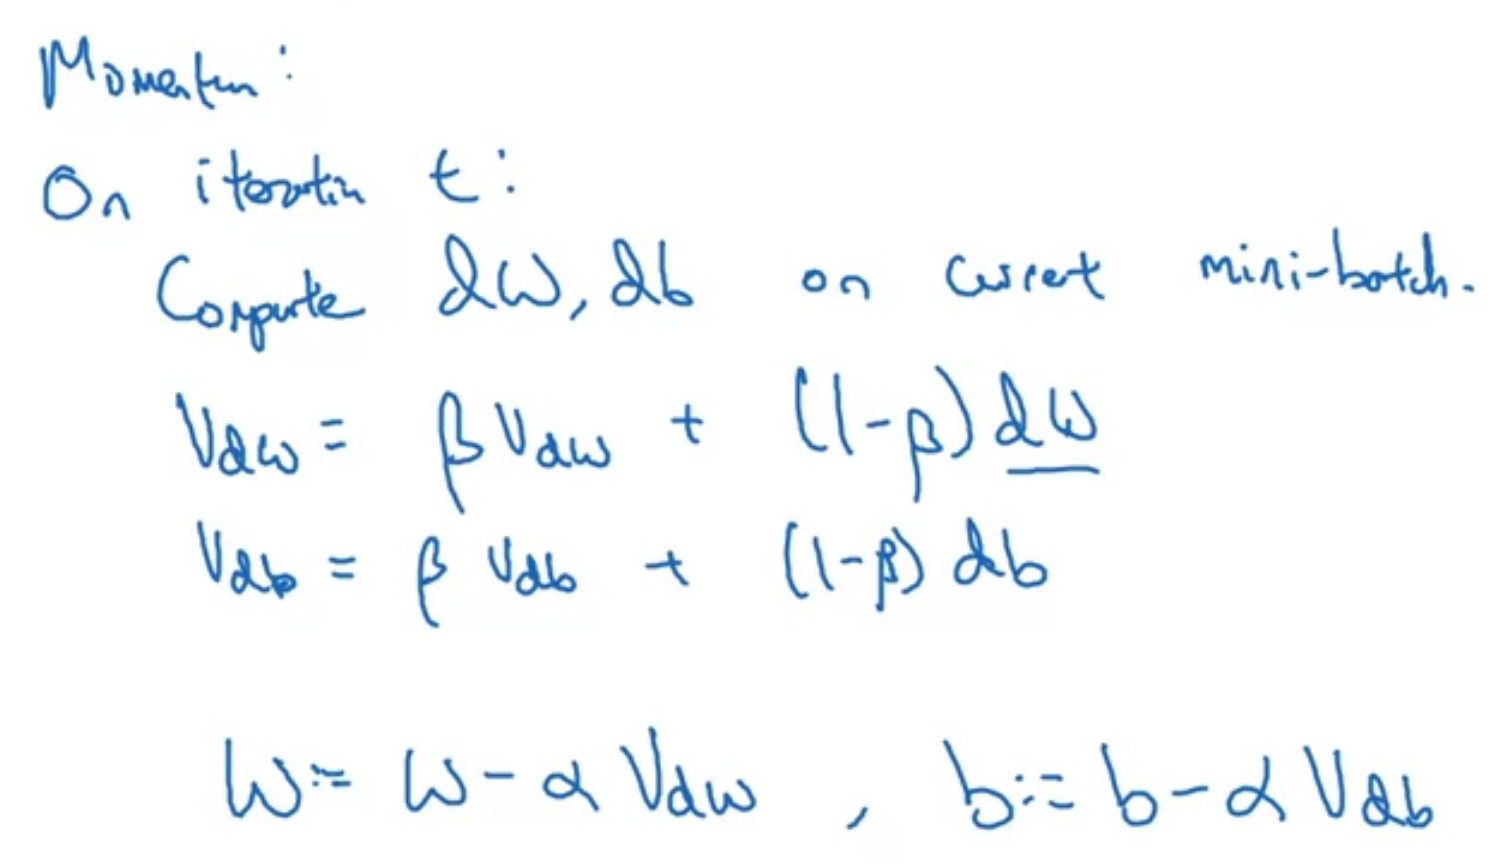 Momentum:
On iteration t:
Compute dW, db on current mini-batch.
V_dw = β V_dw + (1-β) dW
V_db = β V_db + (1-β) db
W := W - α V_dw , b := b - α V_db